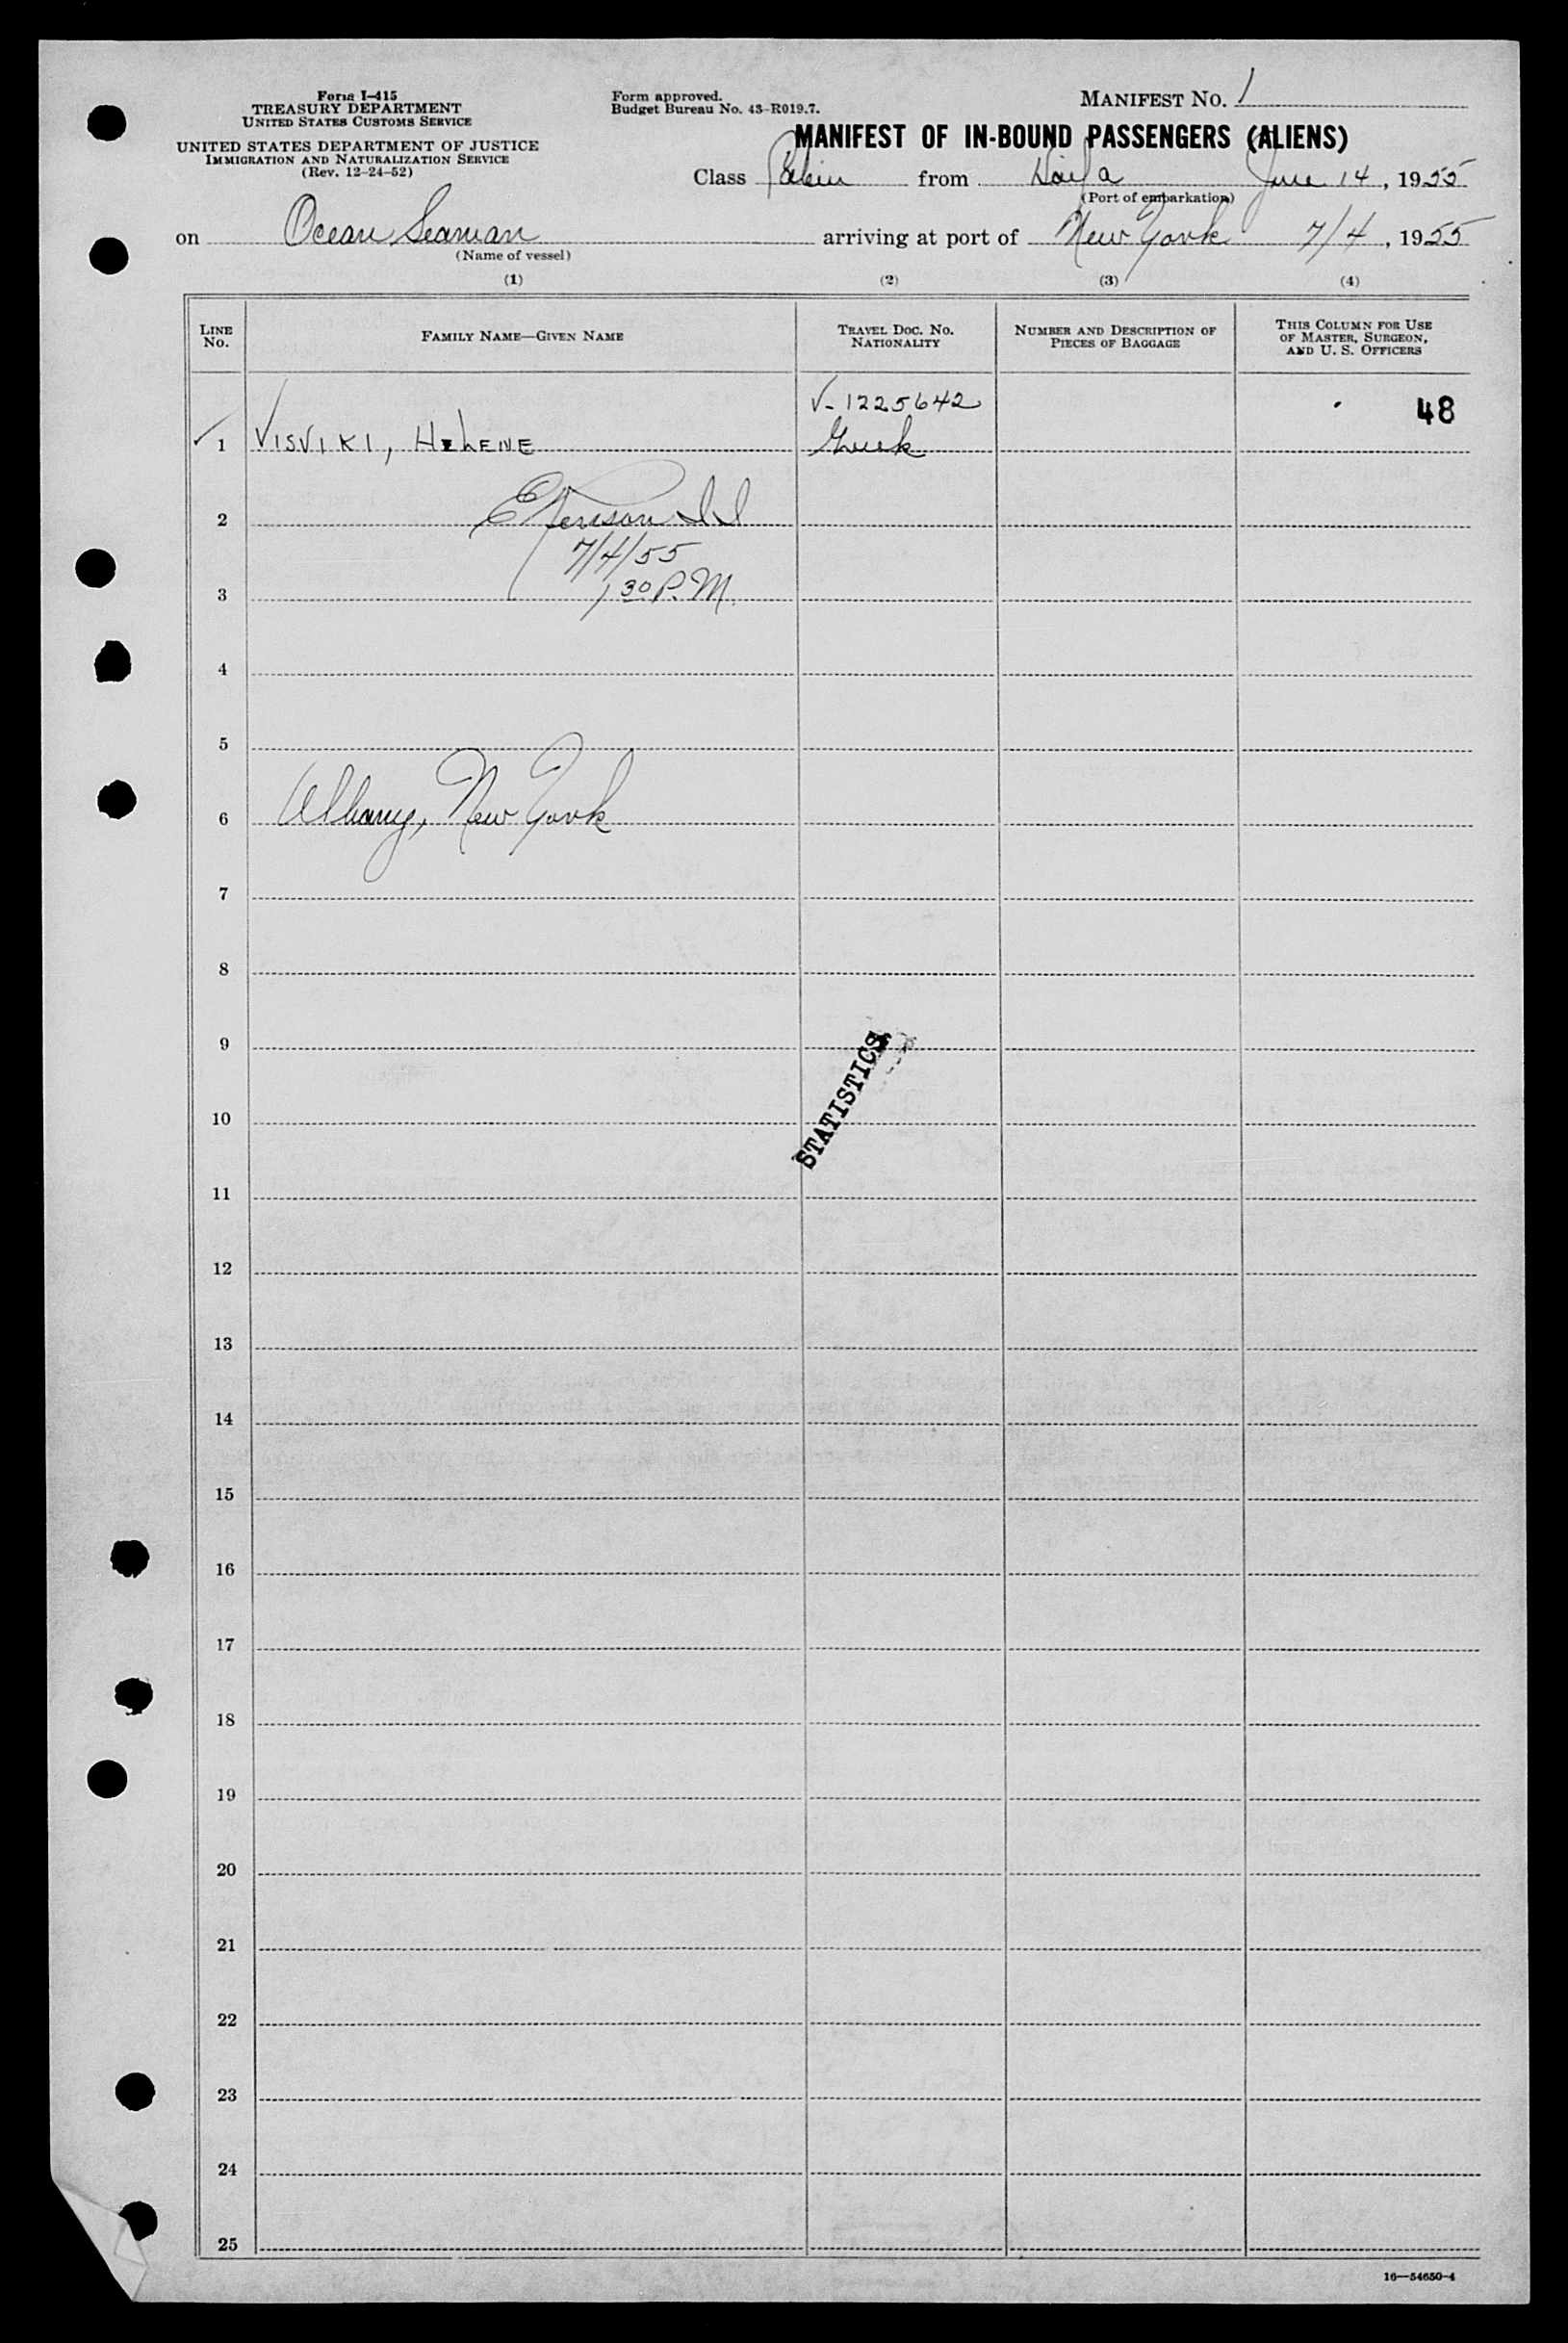 Form I-415
TREASURY DEPARTMENT
UNITED STATES CUSTOMS SERVICE
UNITED STATES DEPARTMENT OF JUSTICE
IMMIGRATION AND NATURALIZATION SERVICE
(Rev. 12-24-52)
Form approved.
Budget Bureau No. 43-R019.7.
MANIFEST NO. 1
MANIFEST OF IN-BOUND PASSENGERS (ALIENS)
Class Cabin from June 14, 1955
(Port of embarkation)
on Ocean Seaman arriving at port of New York 7/4, 1955
(Name of vessel)
(1) (2) (3) (4)
LINE NO. FAMILY NAME—GIVEN NAME TRAVEL DOC. NO. NATIONALITY NUMBER AND DESCRIPTION OF PIECES OF BAGGAGE THIS COLUMN FOR USE OF MASTER, SURGEON, AND U. S. OFFICERS
V-1225642 48
1 VISVIKI, HELENE Greek
2
7/4/55
3 1 30 P.M.
4
5
6 Albany, New York
7
8
9
STATISTICS
10
11
12
13
14
15
16
17
18
19
20
21
22
23
24
25
16—54650-4